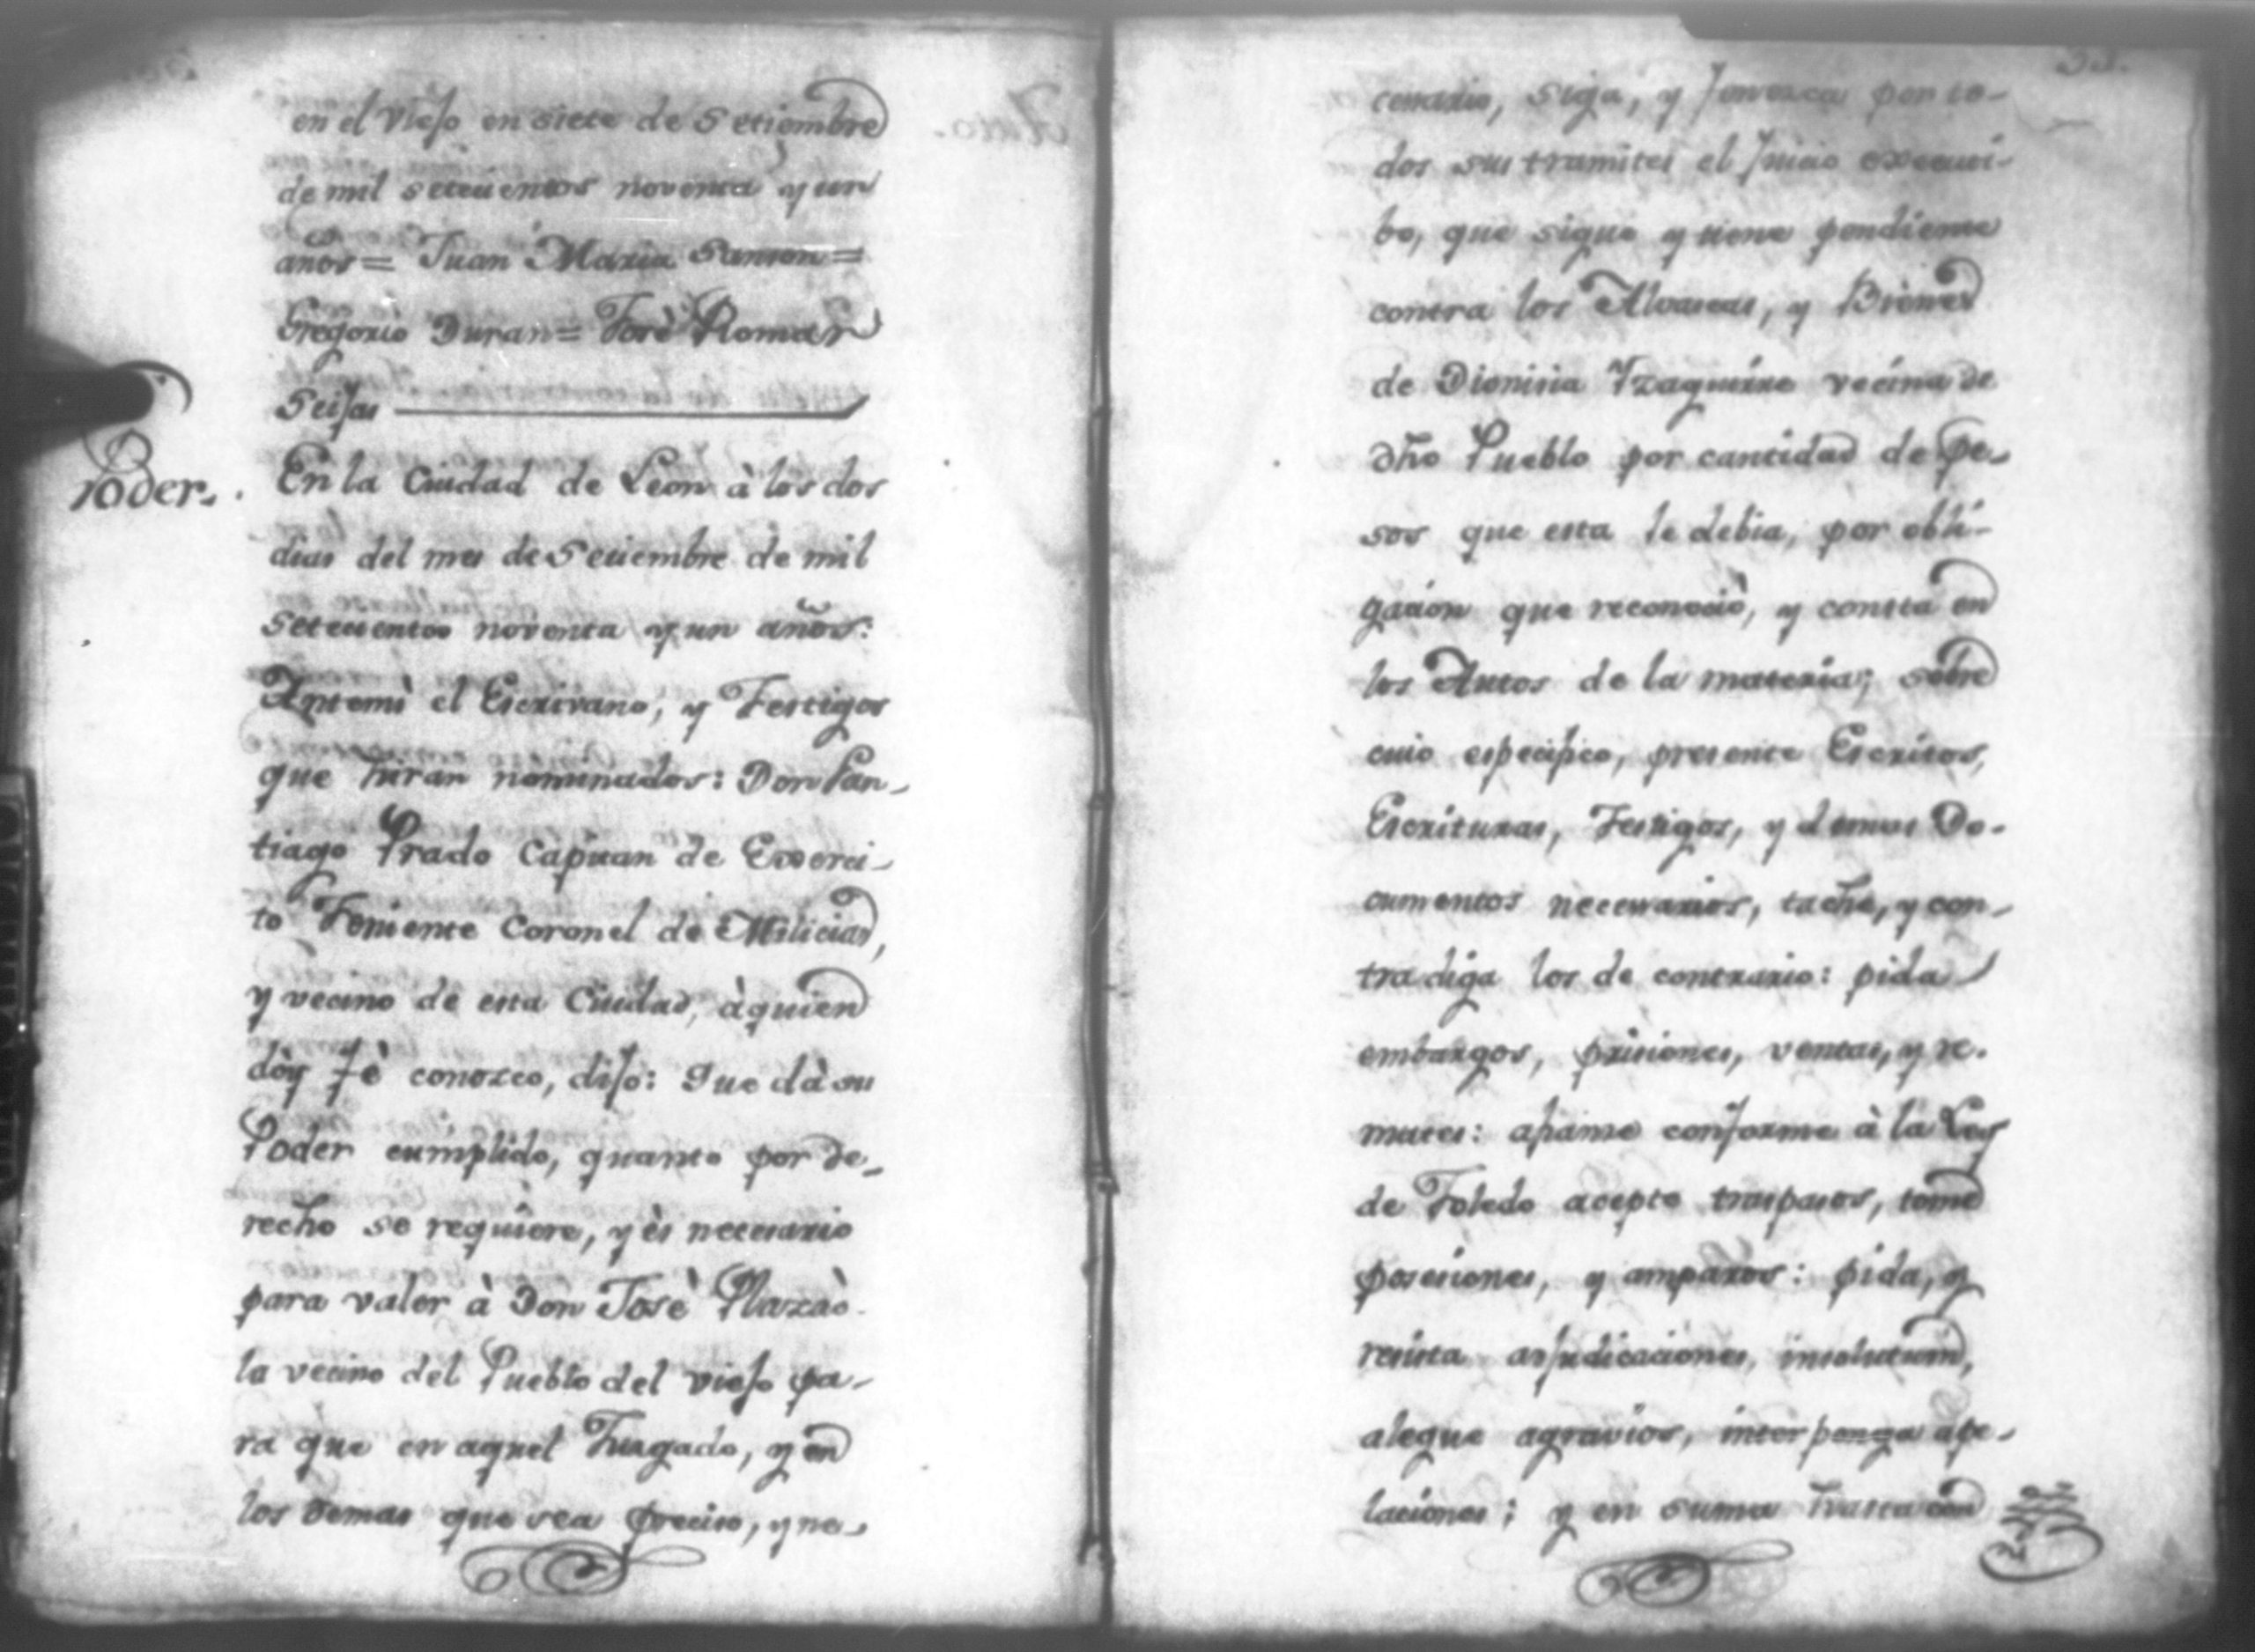 en el Viejo en siete de Setiembre
de mil setecientos noventa y un
años = Juan Maria Samson =
Gregorio Duran = José Roman
Seijas
Poder.
En la Ciudad de Leon à los dos
dias del mes de Setiembre de mil
setecientos noventa y un años:
Antemi el Escrivano, y Testigos
que hiran nominados: Don San-
tiago Prado Capitan de Exerci-
to Teniente Coronel de Milicias,
y vecino de esta Ciudad, à quien
dòy fè conozco, dijo: Que dà su
Poder cumplido, quanto por de-
recho se requiere, y ès necesario
para valer à Don Josè Plazaò-
la vecino del Pueblo del viejo pa-
ra que en aquel Juzgado, y en
los demas que sea preciso, y ne-
cesario, siga, y fenezca por to-
dos sus tramites el Juicio executi-
bo, que sigue y tiene pendiente
contra los Alvaceas, y Bienes
de Dionisia Yzaguirre vecina de
dho Pueblo por cantidad de pe-
sos que esta le debia, por obli-
gacion que reconociò, y consta en
los Autos de la materia; sobre
cuio especifico, presente Escritos,
Escrituras, Testigos, y demas Do-
cumentos necesarios, tache, y con-
tradiga los de contrario: pida
embargos, prisiones, ventas, y re-
mates: afiance conforme à la Ley
de Toledo acepte traspasos, tome
posesiones, y amparos: pida, y
resista adjudicaciones, insolutum,
alegue agravios, interponga ape-
laciones; y en suma hasta con